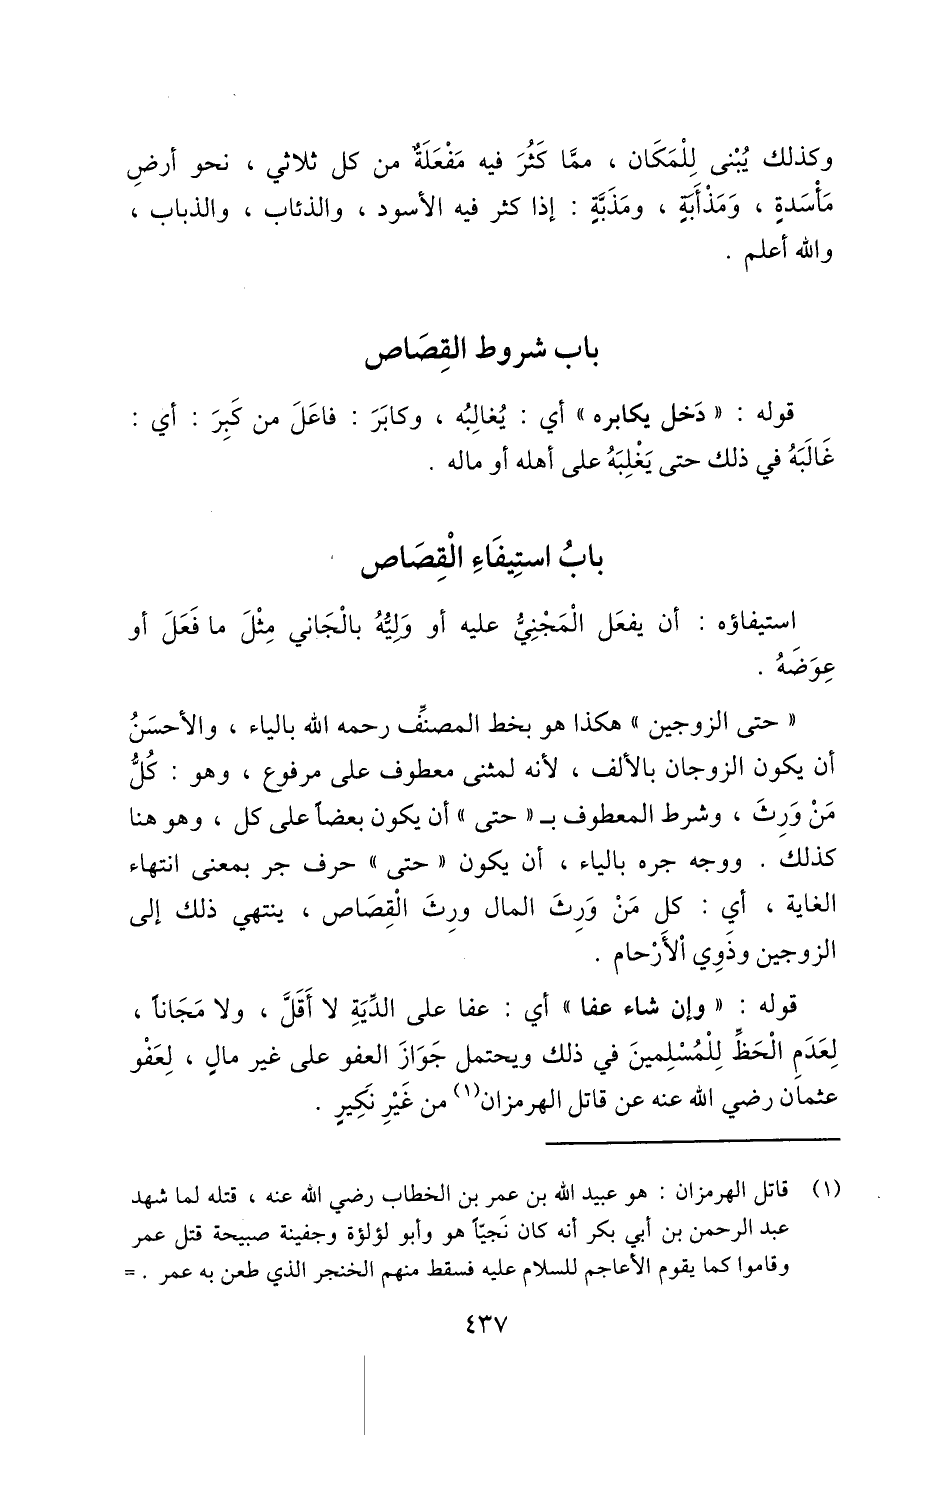 وكذلك يُبْنى لِلْمَكَان ، ممَّا كَثُرَ فيه مَفْعَلَةٌ من كل ثلاثي ، نحو أرضِ
مَأْسَدةٍ ، وَمَذْأَبَةٍ ، ومَذَبَّةٍ : إذا كثر فيه الأسود ، والذئاب ، والذباب ،
والله أعلم .
باب شروط القِصَاص
قوله : « دَخل يكابره » أي : يُغالِبُه ، وكابَرَ : فاعَلَ من كَبِرَ : أي :
غَالَبَهُ في ذلك حتى يَغْلِبَهُ على أهله أو ماله .
بابُ استِيفَاءِ الْقِصَاص
استيفاؤه : أن يفعَل الْمَجْنِيُّ عليه أو وَلِيُّهُ بالْجَاني مِثْلَ ما فَعَلَ أو
عِوَضَهُ .
« حتى الزوجين » هكذا هو بخط المصنِّف رحمه الله بالياء ، والأحسَنُ
أن يكون الزوجان بالألف ، لأنه لمثنى معطوف على مرفوع ، وهو : كُلُّ
مَنْ وَرِثَ ، وشرط المعطوف بـ « حتى » أن يكون بعضاً على كل ، وهو هنا
كذلك . ووجه جره بالياء ، أن يكون « حتى » حرف جر بمعنى انتهاء
الغاية ، أي : كل مَنْ وَرِثَ المال ورِثَ الْقِصَاص ، ينتهي ذلك إلى
الزوجين وذَوِي اْلأَرْحام .
قوله : « وإن شاء عفا » أي : عفا على الدِّيَةِ لا أَقَلَّ ، ولا مَجَاناً ،
لِعَدَمِ الْحَظِّ لِلْمُسْلِمينَ في ذلك ويحتمل جَوَازَ العفو على غير مالٍ ، لِعَفْو
عثمان رضي الله عنه عن قاتل الهرمزان(١) من غَيْرِ نَكِيرٍ .
(١) قاتل الهرمزان : هو عبيد الله بن عمر بن الخطاب رضي الله عنه ، قتله لما شهد
عبد الرحمن بن أبي بكر أنه كان نَجيّاً هو وأبو لؤلؤة وجفينة صبيحة قتل عمر
وقاموا كما يقوم الأعاجم للسلام عليه فسقط منهم الخنجر الذي طعن به عمر . =
٤٣٧